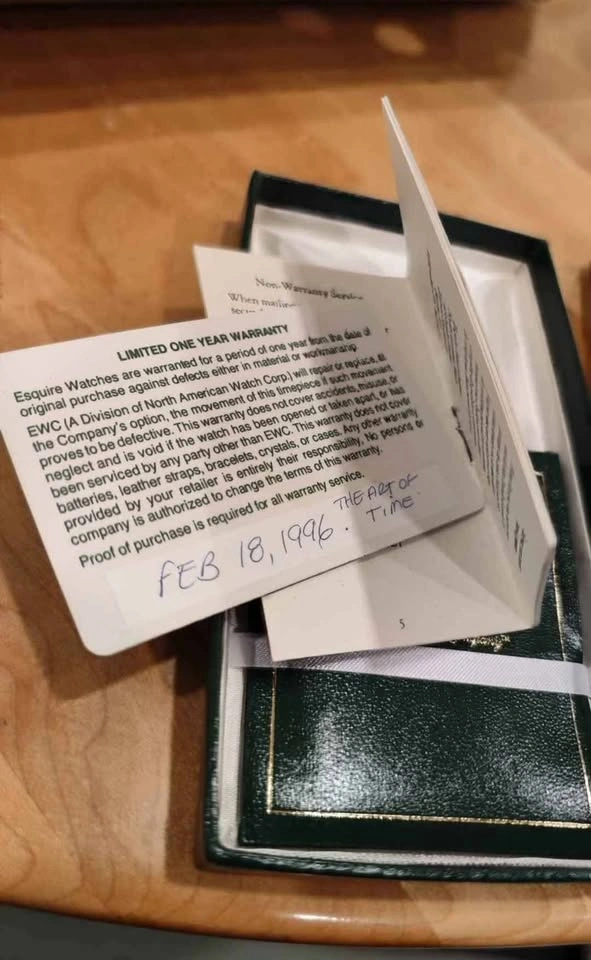 Non-Warranty Service
When mailing
LIMITED ONE YEAR WARRANTY
Esquire Watches are warranted for a period of one year from the date of
original purchase against defects either in material or workmanship.
EWC (A Division of North American Watch Corp.) will repair or replace, at
the Company's option, the movement of this timepiece if such movement
proves to be defective. This warranty does not cover accidents, misuse, or
neglect and is void if the watch has been opened or taken apart, or has
been serviced by any party other than EWC. This warranty does not cover
batteries, leather straps, bracelets, crystals, or cases. Any other warranty
provided by your retailer is entirely their responsibility. No persons or
company is authorized to change the terms of this warranty.
Proof of purchase is required for all warranty service.
FEB 18, 1996. THE ART OF
TIME.
5